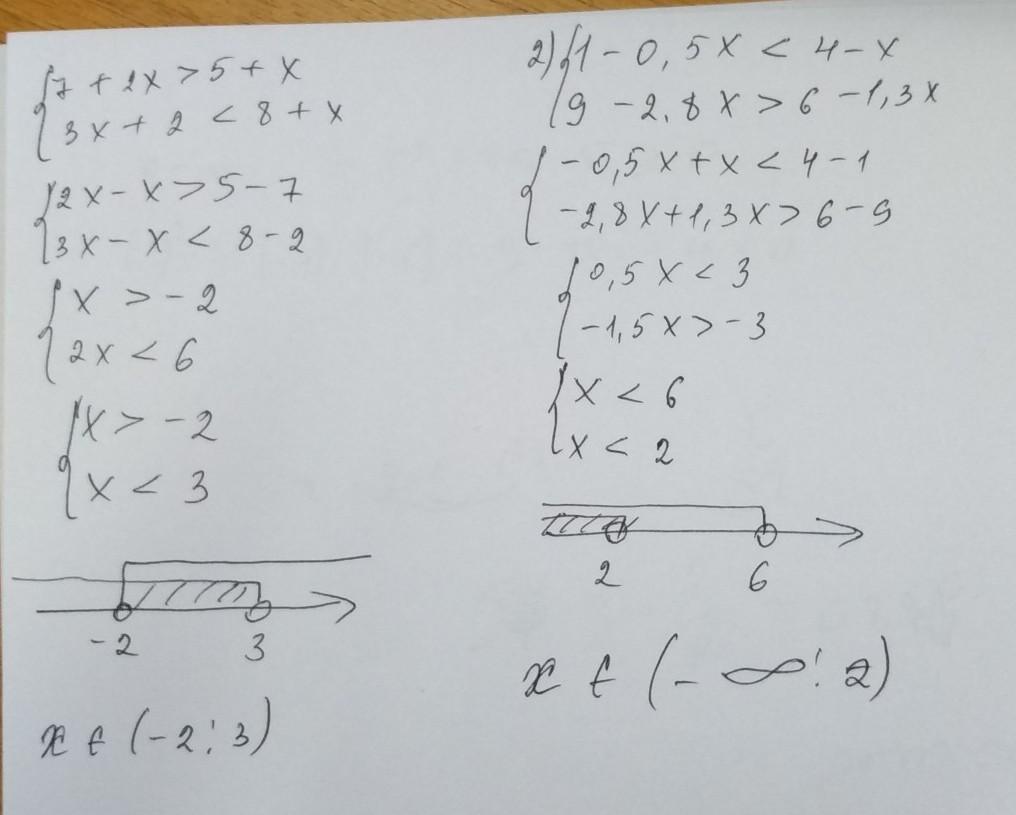 7 + 2x > 5 + x
3x + 2 < 8 + x
2x - x > 5 - 7
3x - x < 8 - 2
x > - 2
2x < 6
x > - 2
x < 3
-2 3
x ∈ (-2; 3)
2) 1 - 0,5x < 4 - x
9 - 2,8x > 6 - 1,3x
- 0,5x + x < 4 - 1
-2,8x + 1,3x > 6 - 9
0,5x < 3
-1,5x > -3
x < 6
x < 2
2 6
x ∈ (- ∞; 2)